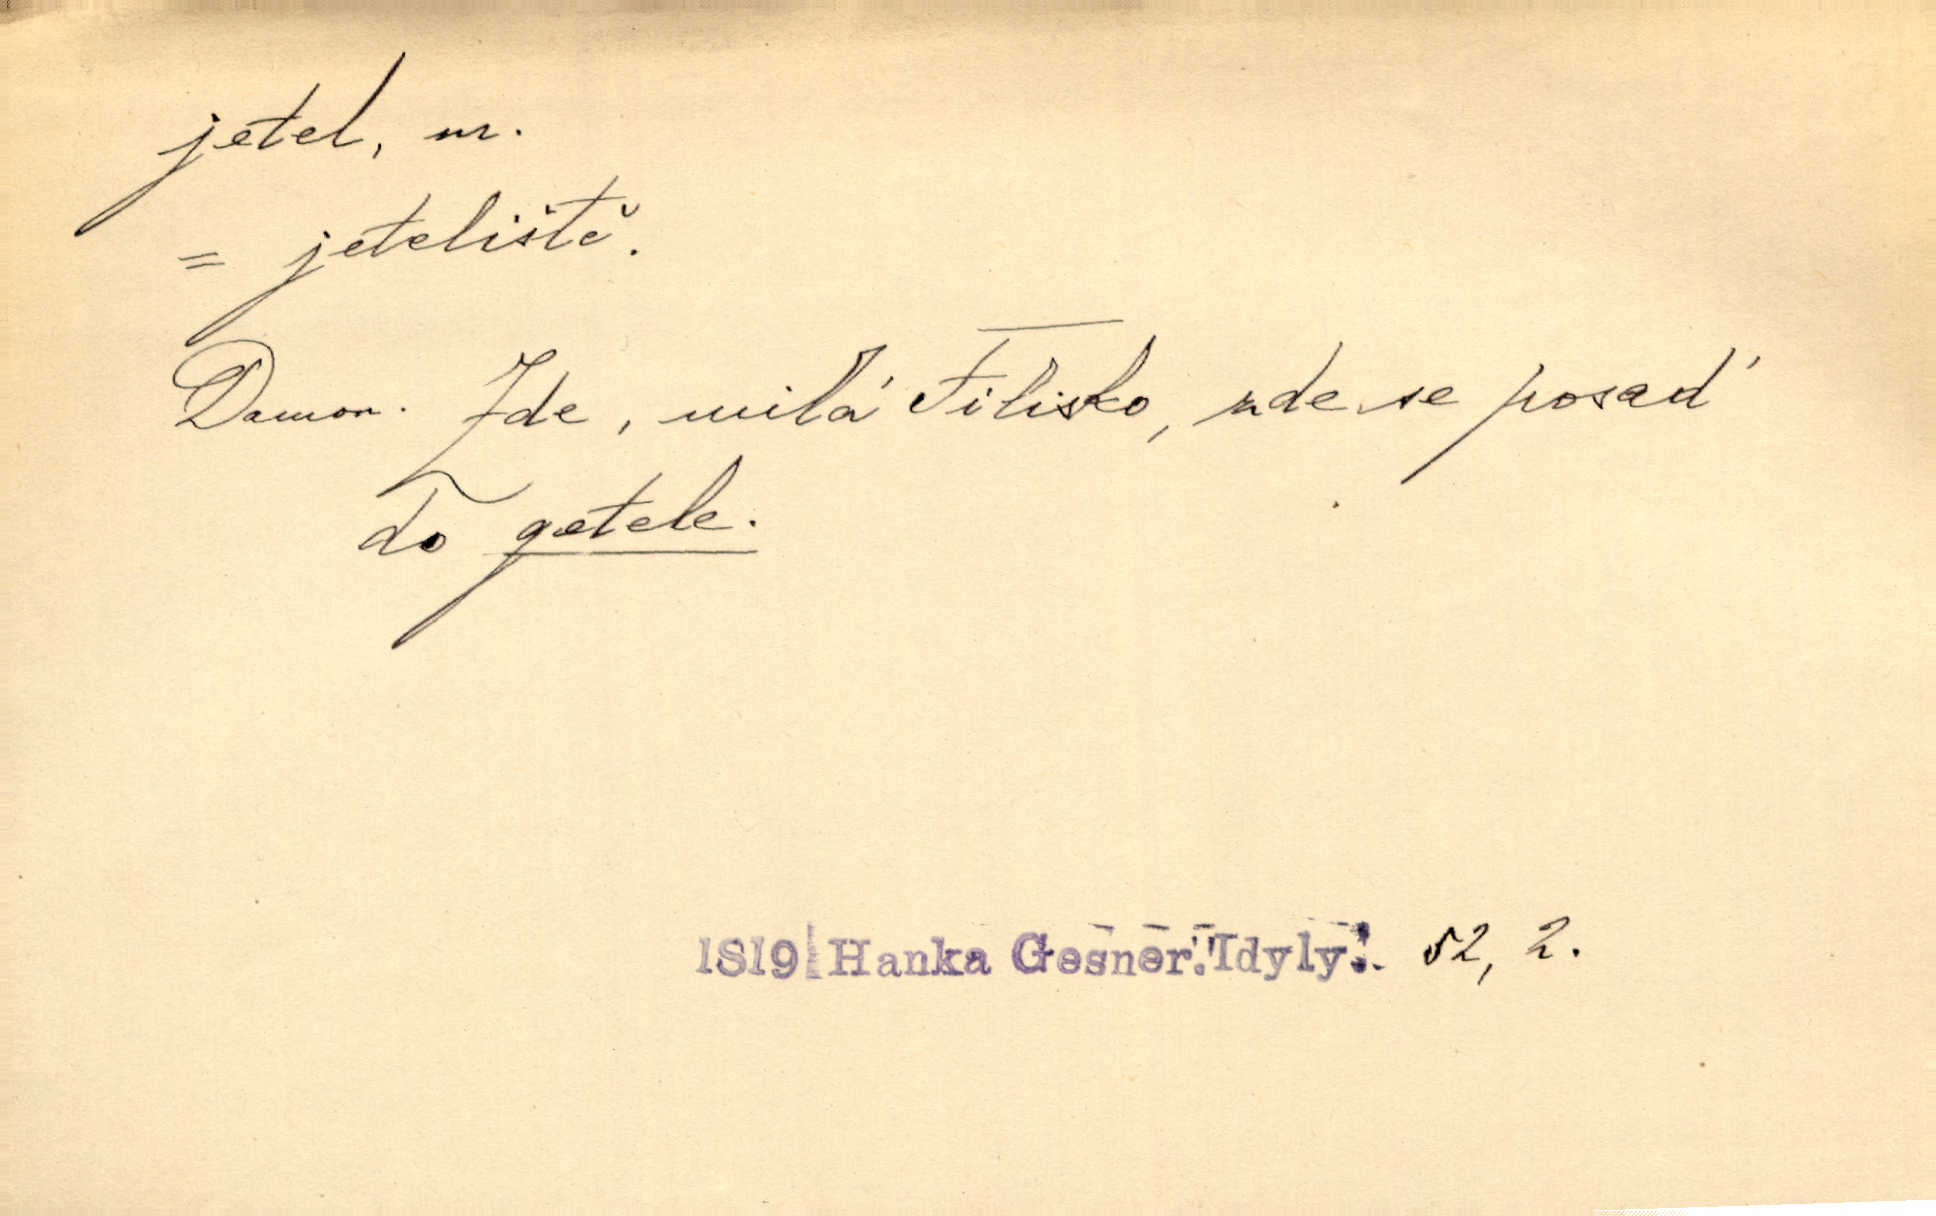 jetel, m.
= jeteliště.
Damon. Zde, milá Filisko, zde se posaď
do getele.
1819 Hanka Gesner. Idyly. 52, 2.